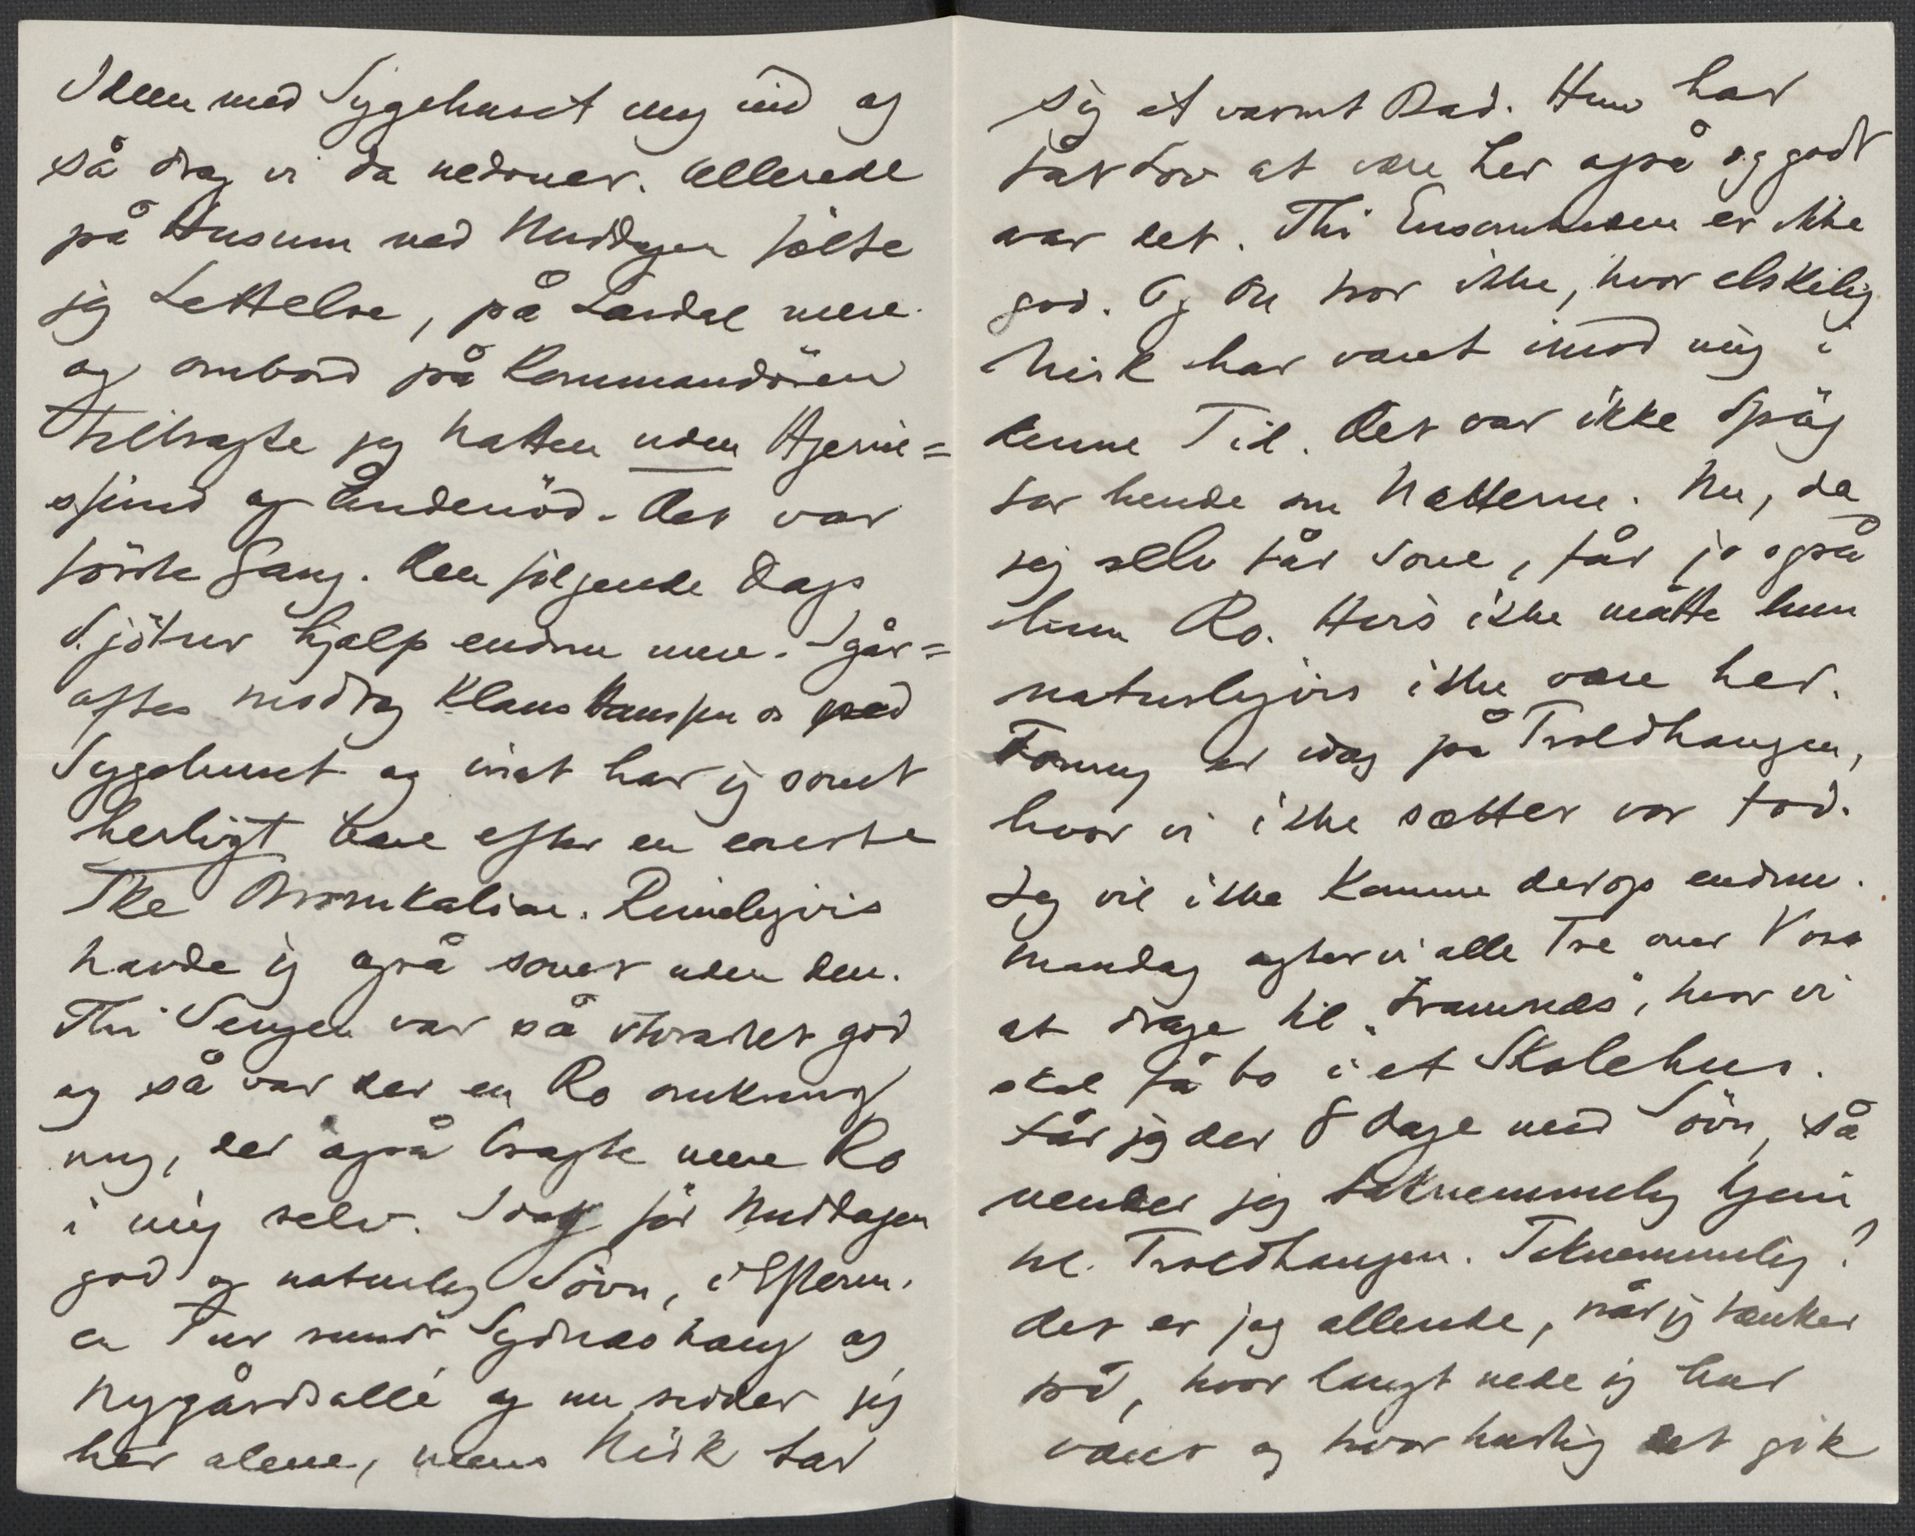 Ideen med Sygehuset mig ind og
så drog vi da nedover. Allerede
på Husum ved Middagen følte
jeg Lettelse, på Lærdal mere
og ombord på Kommandören
tilbragte jeg Natten uden Hjerte=
og Åndenöd. Det var
förste Gang. Den følgende Dags
Sjötur hjalp endnu mere. Igår=
aftes modtog Klaus Hanssen os på
Sygehuset og inat har jeg sovet
herligt bare efter en eneste
Ske Bromkalium. Rimeligvis
havde jeg også sovet uden den.
Thi Sengen var så god
og så var der en Ro omkring
mig, der også bragte mere Ro
i mig selv. Idag før Middagen
god og naturlig Sövn, i Efterm.
en Tur rundt Sydneshaug og
Nygårdsallé og nu sidder jeg
her alene, mens Nisk tar
sig et varmt Bad. Hun har
fåt Lov at være her også og godt
var det. Thi Ensomheden er ikke
god. Og Du tror ikke, hvor elskelig
Nisk har været imod mig i
denne Tid. Det var ikke Spög
for hende om Nætterne. Nu, da
jeg selv får sove, får jo også
hun Ro. Hvis ikke måtte hun
naturligvis ikke være her.
Tonny er idag på Troldhaugen,
hvor vi ikke sætter vor Fod.
Jeg vil ikke komme derop endnu.
Mandag agter vi alle Tre over Voss
at drage til "Framnæs", hvor vi
skal få bo i et Skolehus.
Får jeg der 8 Dage med Sövn, så
vender jeg taknemmelig hjem
til Troldhaugen. Taknemmelig!
det er jeg allerede, når jeg tænker
på, hvor langt nede jeg har
været og hvor hurtig det gik